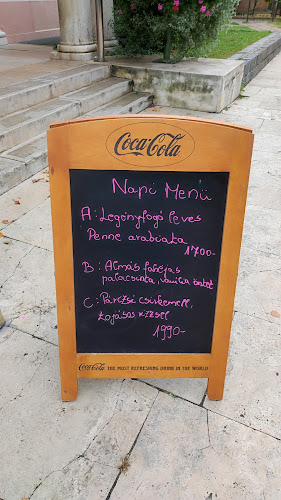 Coca-Cola
Napi Menü
A: Legényfogó leves
Penne arabiata
1700.-
B: Almás fahéjas
palacsinta, vanília öntet
C: Párizsi csirkemell,
tojásos rizzsel
1990.-
Coca-Cola THE MOST REFRESHING DRINK IN THE WORLD